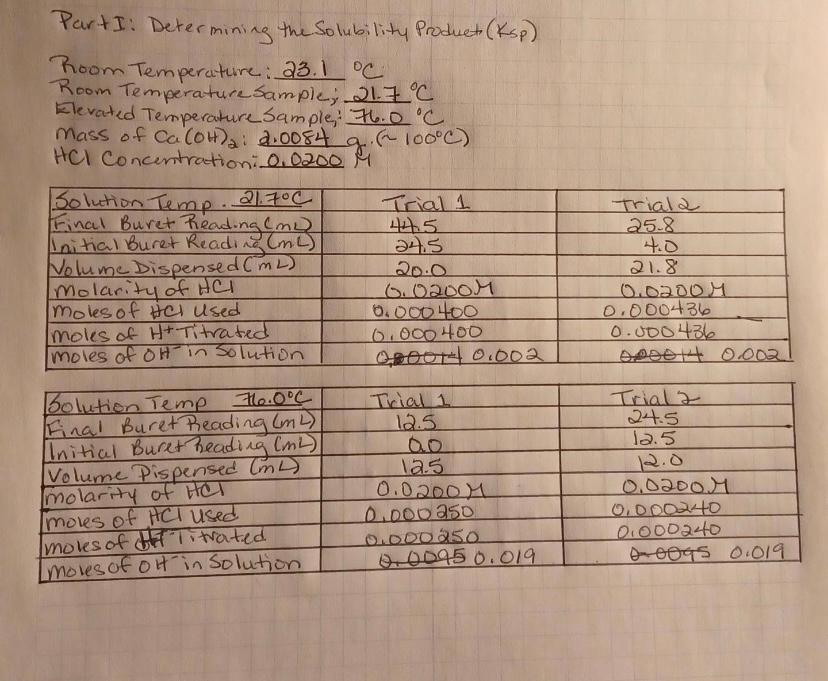 Part I: Determining the Solubility Product (Ksp)
Room Temperature: 23.1 °C
Room Temperature Sample; 21.7 °C
Elevated Temperature Sample: 76.0 °C
Mass of Ca(OH)₂: 2.0084 g. (~ 100°C)
HCl Concentration: 0.0200 M
Solution Temp. 21.7°C Trial 1 Trial 2
Final Buret Reading (mL) 44.5 25.8
Initial Buret Reading (mL) 24.5 4.0
Volume Dispensed (mL) 20.0 21.8
Molarity of HCl 0.0200M 0.0200M
Moles of HCl Used 0.000400 0.000436
Moles of H+ Titrated 0.000400 0.000436
Moles of OH⁻ in Solution 0.00014 0.002 0.00014 0.002
Solution Temp 76.0°C Trial 1 Trial 2
Final Buret Reading (mL) 12.5 24.5
Initial Buret Reading (mL) 0.0 12.5
Volume Dispensed (mL) 12.5 12.0
Molarity of HCl 0.0200M 0.0200M
Moles of HCl Used 0.000250 0.000240
Moles of H+ Titrated 0.000250 0.000240
Moles of OH⁻ in Solution 0.0095 0.019 0.0095 0.019